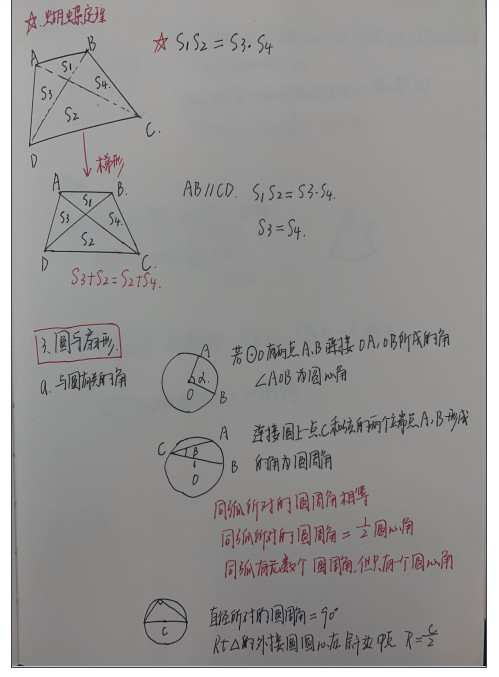 ☆ 蝴蝶定理
☆ S1S2 = S3·S4
A
B
S1
S3
S4.
S2
C.
D
梯形
A
B.
S1
S3
S4.
S2
D
C.
AB//CD. S1S2 = S3·S4.
S3 = S4.
S3+S2 = S2+S4.
3. 圆与扇形.
a. 与圆有关的角
A
α.
O
B
若⊙O有两点A、B 连接OA、OB所成的角
∠AOB 为圆心角
C
A
β
B
O
连接圆上一点C和弦的两个端点A、B形成
的角为圆周角
同弧所对的圆周角相等
同弧所对的圆周角 = 1/2 圆心角
同弧有无数个圆周角.但只有一个圆心角
C
直径所对的圆周角 = 90°
Rt△的外接圆圆心在斜边中点 R = c/2